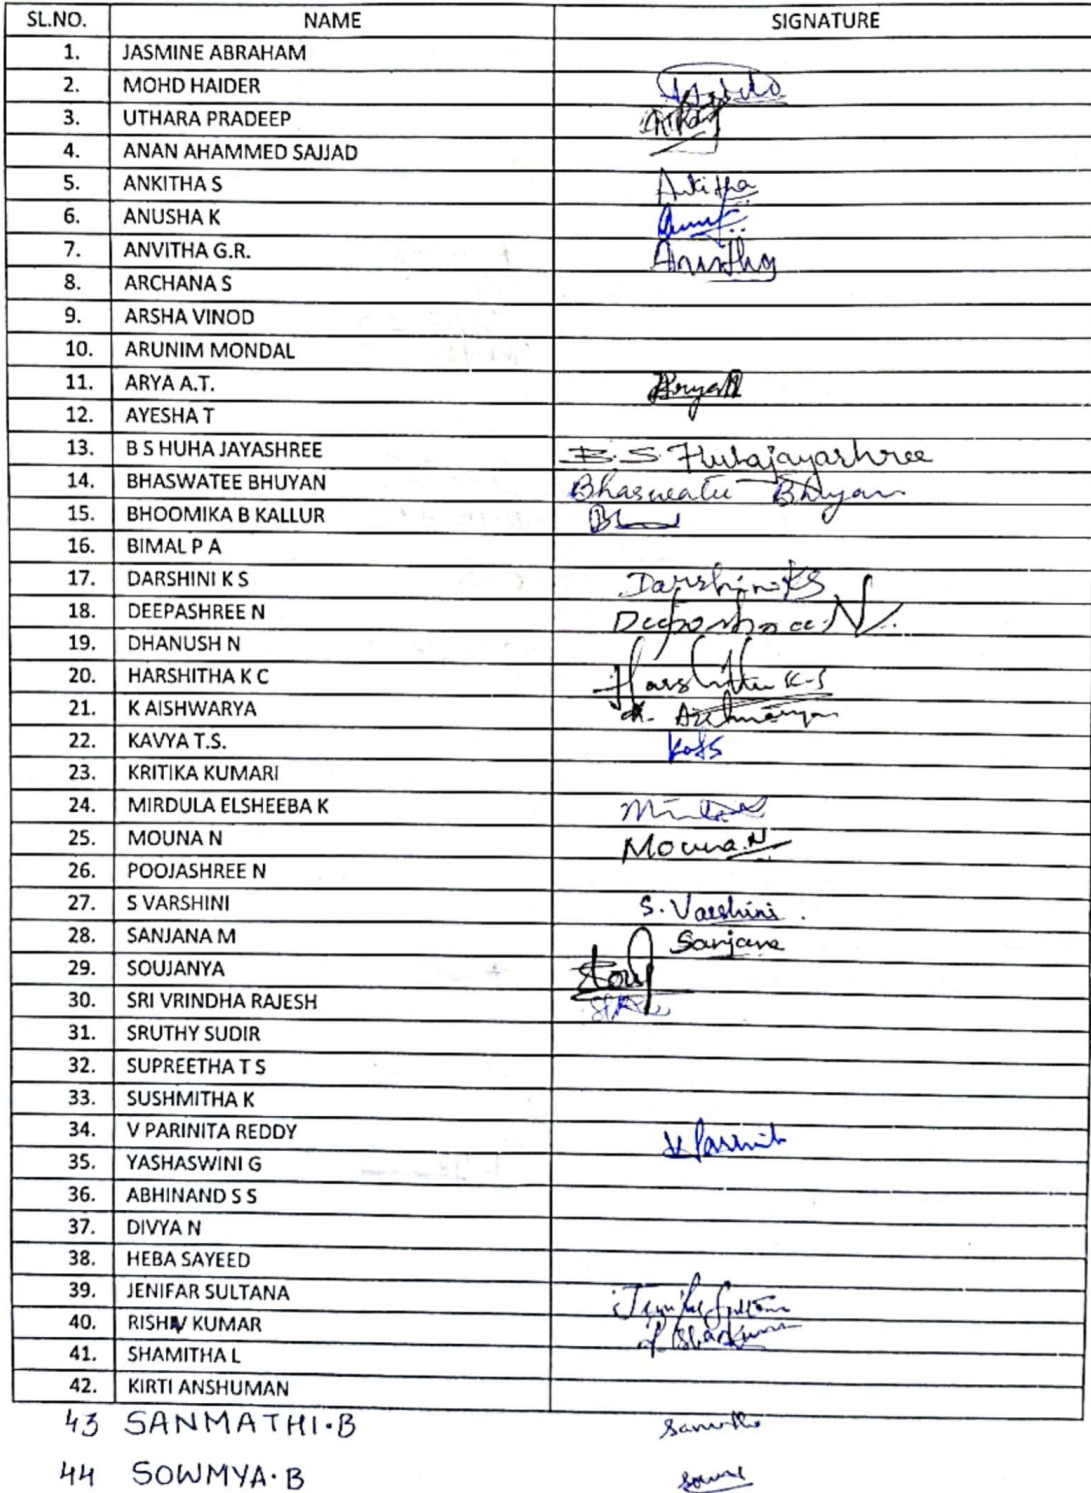 SL.NO. NAME SIGNATURE
1. JASMINE ABRAHAM
2. MOHD HAIDER
3. UTHARA PRADEEP
4. ANAN AHAMMED SAJJAD
5. ANKITHA S Ankitha
6. ANUSHA K
7. ANVITHA G.R. Anvitha
8. ARCHANA S
9. ARSHA VINOD
10. ARUNIM MONDAL
11. ARYA A.T.
12. AYESHA T
13. B S HUHA JAYASHREE B.S Huhajayashree
14. BHASWATEE BHUYAN Bhaswatee Bhuyan
15. BHOOMIKA B KALLUR
16. BIMAL P A
17. DARSHINI K S Darshini KS
18. DEEPASHREE N Deepashree N.
19. DHANUSH N
20. HARSHITHA K C
21. K AISHWARYA K. Aishwarya
22. KAVYA T.S.
23. KRITIKA KUMARI
24. MIRDULA ELSHEEBA K
25. MOUNA N Mouna.N
26. POOJASHREE N
27. S VARSHINI S. Varshini.
28. SANJANA M Sanjana
29. SOUJANYA
30. SRI VRINDHA RAJESH
31. SRUTHY SUDIR
32. SUPREETHA T S
33. SUSHMITHA K
34. V PARINITA REDDY
35. YASHASWINI G
36. ABHINAND S S
37. DIVYA N
38. HEBA SAYEED
39. JENIFAR SULTANA
40. KUMAR
41. SHAMITHA L
42. KIRTI ANSHUMAN
43 SANMATHI.B
44 SOWMYA.B